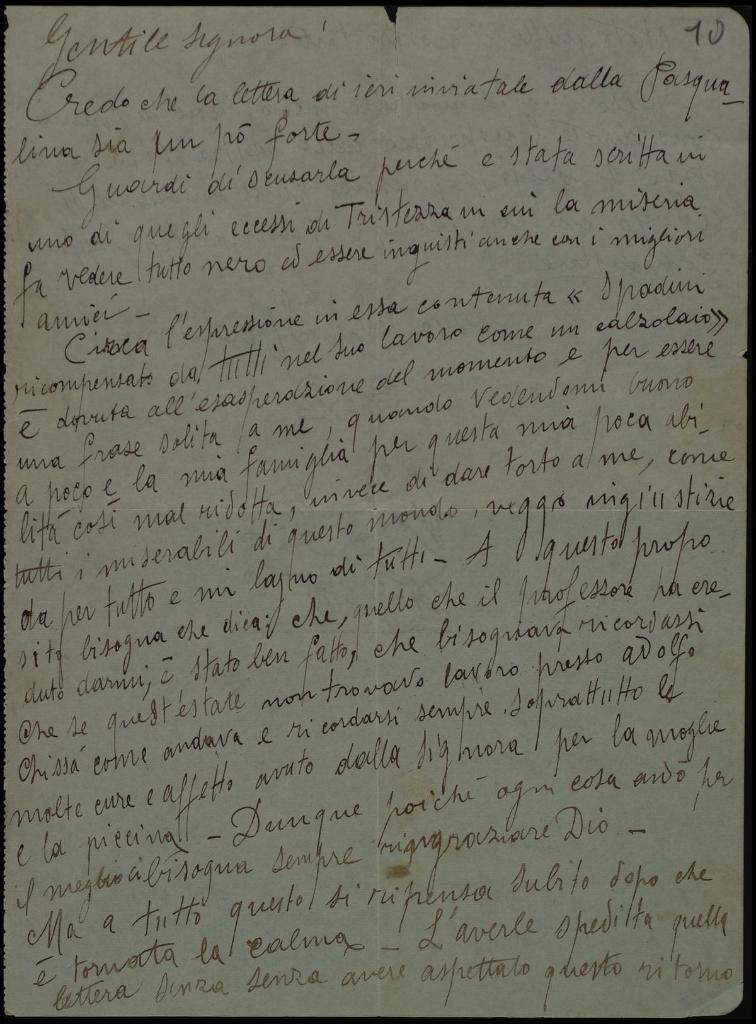 10
Gentile signora!
Credo che la lettera di ieri inviatale dalla Pasqua-
lina sia un pò forte -
Guardi di scusarla perché e stata scritta in
uno di quegli eccessi di Tristezza in cui la miseria
fa vedere tutto nero ed essere ingiusti anche con i migliori
amici -
Circa l'espressione in essa contenuta « Spadini
ricompensato da tutti nel suo lavoro come un calzolaio»
è dovuta all'esasperazione del momento e per essere
una frase solita a me, quando vedendomi buono
a poco e la mia famiglia per questa mia poca abi-
lità così mal ridotta, invece di dare torto a me, come
tutti i miserabili di questo mondo, veggo ingiustizie
da per tutto e mi lagno di tutti - A questo propo
sito bisogna che dica: che, quello che il professore ha cre-
duto darmi, è stato ben fatto, che bisognava ricordassi
che se quest'estate non trovavo lavoro presso adolfo
chissà come andava e ricordarsi sempre soprattutto le
molte cure e affetto avuto dalla signora per la moglie
e la piccina - Dunque poiché ogni cosa andò per
il meglio ci bisogna sempre ringraziare Dio -
Ma a tutto questo si ripensa subito dopo che
è tornata la calma - L'averle spedita quella
lettera senza senza avere aspettato questo ritorno